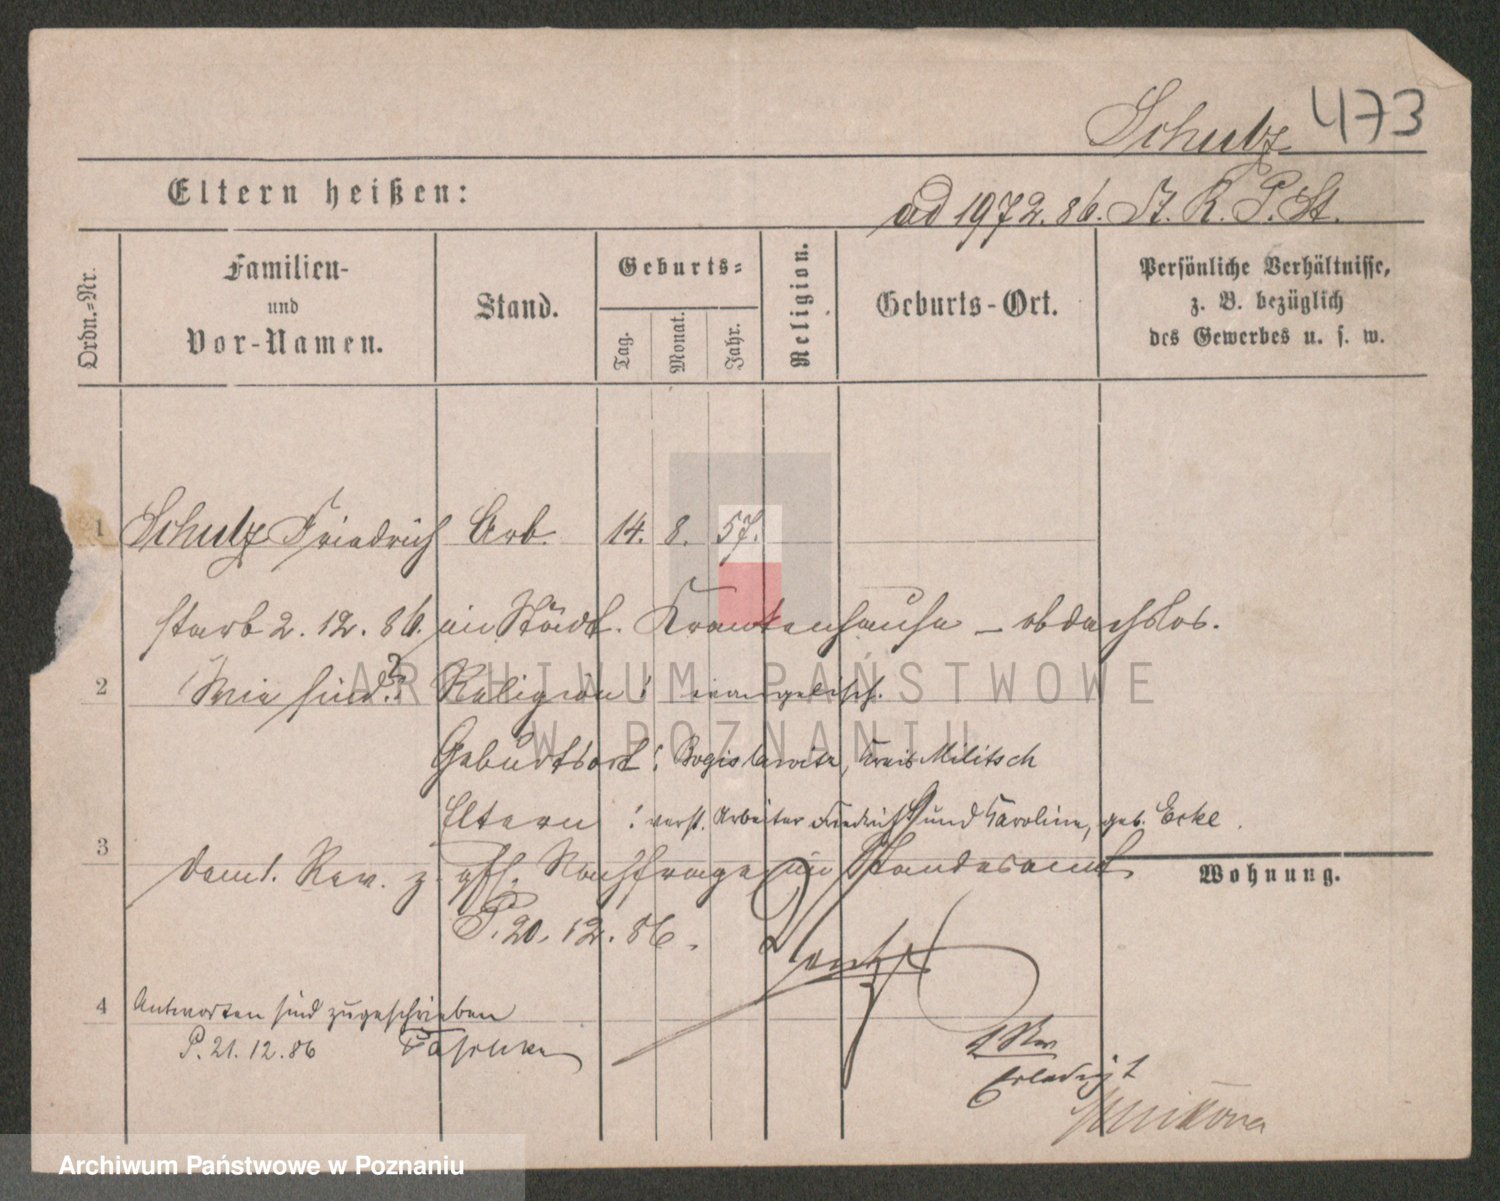 Schulz 473
Eltern heißen:
ad 1972.86. St. R. P. St.
Ordn.-Nr.
Familien-
und
Vor-Namen.
Stand.
Geburts-
Tag.
Monat.
Jahr.
Religion.
Geburts-Ort.
Persönliche Verhältnisse,
z. B. bezüglich
des Gewerbes u. s. w.
1 Schulz Friedrich Arb. 14. 8. 57.
starb 2.12.86. im Städt. Krankenhause – obdachlos.
2 Wie sind? Religion: evangelisch.
Geburtsort: Bogislawitz, Kreis Militsch
Eltern: verst. Arbeiter Friedrich und Caroline, geb. Ecke.
3
Rev. z. gfl. Nachfrage im Standesamt
Wohnung.
P. 20.12.86.
4 Antworten sind zugeschrieben
P. 21.12.86
Erledigt
ARCHIWUM PAŃSTWOWE
W POZNANIU
Archiwum Państwowe w Poznaniu